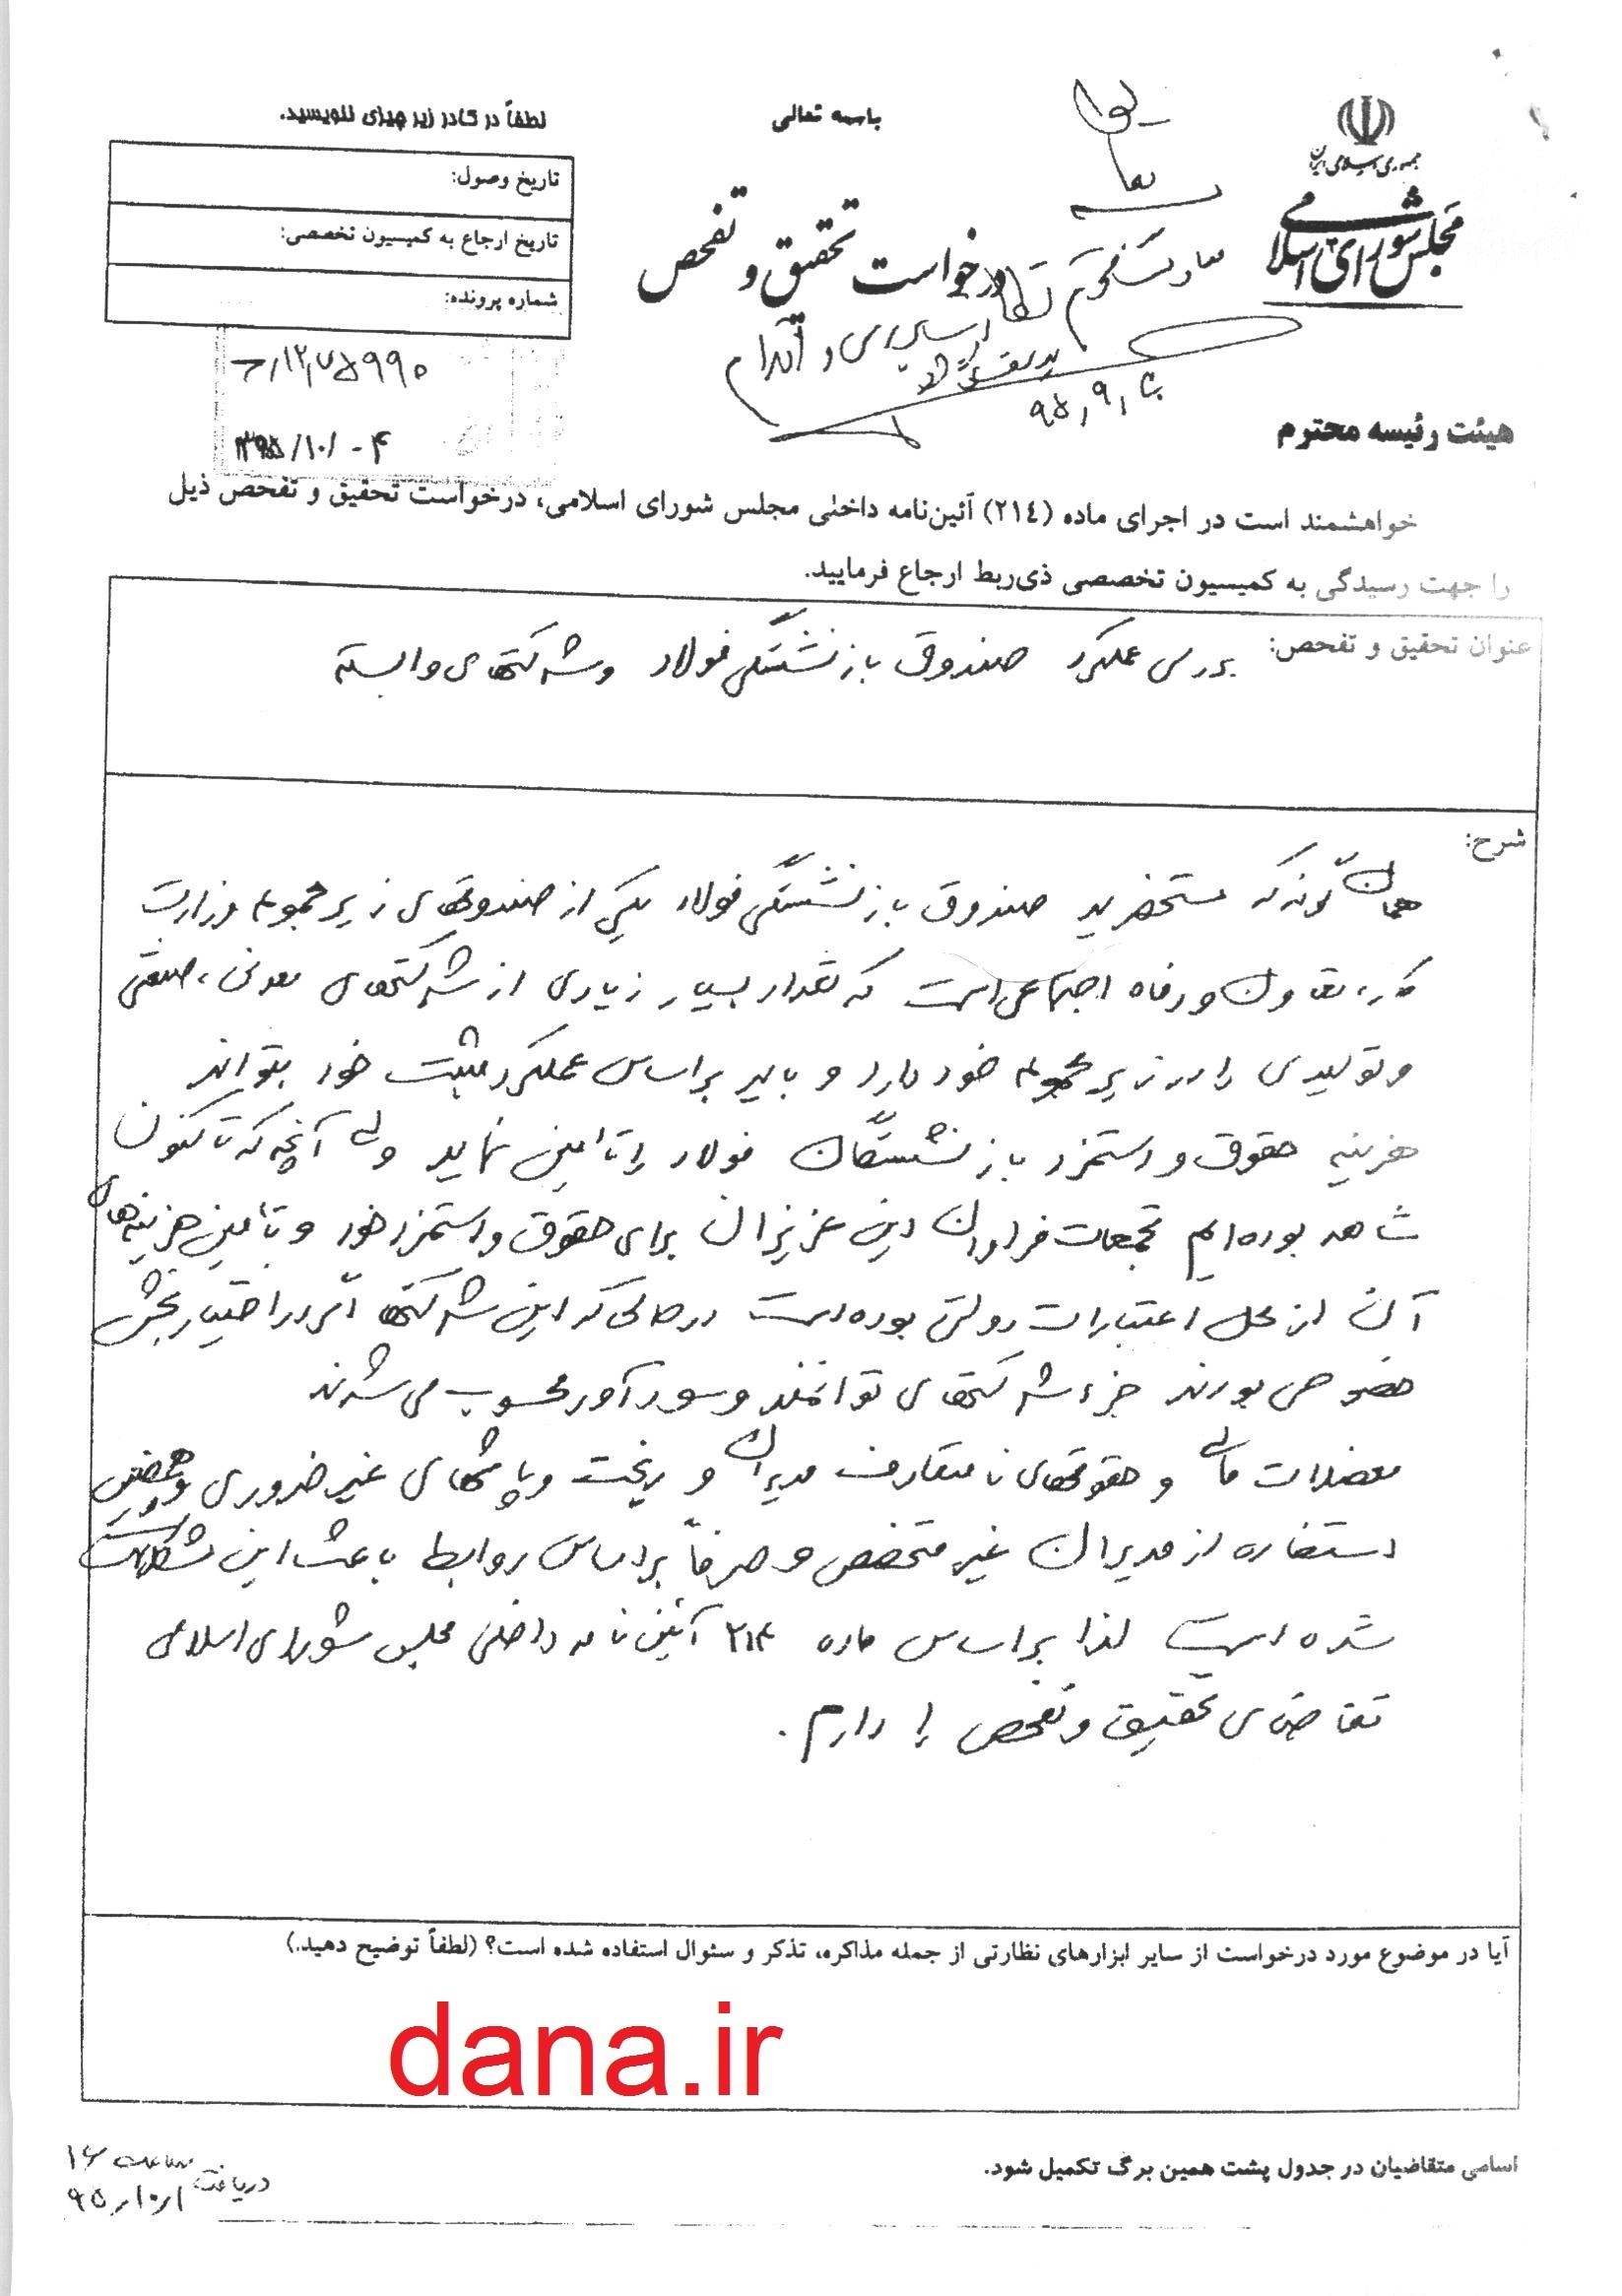 باسمه تعالی
جمهوری اسلامی ایران
مجلس شورای اسلامی
درخواست تحقیق و تفحص
لطفاً در کادر زیر چیزی ننویسید.
تاریخ وصول:
تاریخ ارجاع به کمیسیون تخصصی:
شماره پرونده:
۷۵۹۹۰
۱۳۹۵/۱۰/۰۴
بررسی و اقدام
۹۵،۹،
هیئت رئیسه محترم
خواهشمند است در اجرای ماده (۲۱٤) آئین‌نامه داخلی مجلس شورای اسلامی، درخواست تحقیق و تفحص ذیل
را جهت رسیدگی به کمیسیون تخصصی ذی‌ربط ارجاع فرمایید.
عنوان تحقیق و تفحص: بررسی عملکرد صندوق بازنشستگی فولاد و شرکتهای وابسته
شرح:
همان گونه که مستحضرید صندوق بازنشستگی فولاد یکی از صندوقهای زیر مجموعه وزارت
کار، تعاون و رفاه اجتماعی است که تعداد بسیار زیادی از شرکتهای معدنی، صنعتی
و تولیدی را در زیر مجموعه خود دارد و باید بر اساس عملکرد مثبت خود بتواند
هزینه حقوق و دستمزد بازنشستگان فولاد را تامین نماید ولی آنچه که تا کنون
شاهد بوده‌ایم تجمعات فراوان این عزیزان برای حقوق و دستمزد خود و تامین هزینه‌های
آن از محل اعتبارات دولتی بوده است در حالی که این شرکتها اگر در اختیار بخش
خصوصی بودند جزء شرکتهای توانمند و سودآور محسوب می شدند
معضلات مالی و حقوقهای نامتعارف مدیران و ریخت و پاشهای غیر ضروری و همچنین
استفاده از مدیران غیر متخصص و صرفاً بر اساس روابط باعث این مشکلات
شده است لذا بر اساس ماده ۲۱۴ آئین نامه داخلی مجلس شورای اسلامی
تقاضای تحقیق و تفحص را دارم.
آیا در موضوع مورد درخواست از سایر ابزارهای نظارتی از جمله مذاکره، تذکر و سئوال استفاده شده است؟ (لطفاً توضیح دهید.)
dana.ir
اسامی متقاضیان در جدول پشت همین برگ تکمیل شود.
ساعت ۱۶
دریافت ۹۵/۱۰/۱